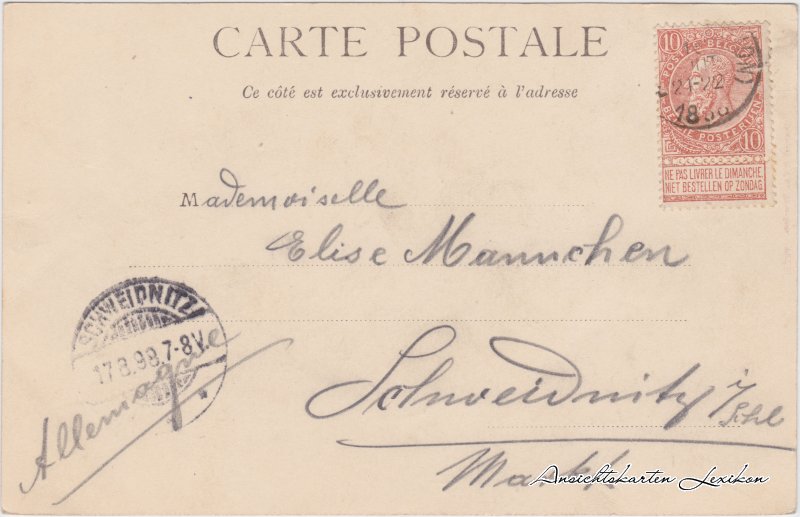 CARTE POSTALE
Ce côté est exclusivement réservé à l'adresse
10 10
POSTERIJEN
NE PAS LIVRER LE DIMANCHE
NIET BESTELLEN OP ZONDAG
21-22
Mademoiselle
Elise Mannchen
SCHWEIDNITZ
17.8.98.7-8V.
Schweidnitz i/Schl
Allemagne
Markt
Ansichtskarten Lexikon